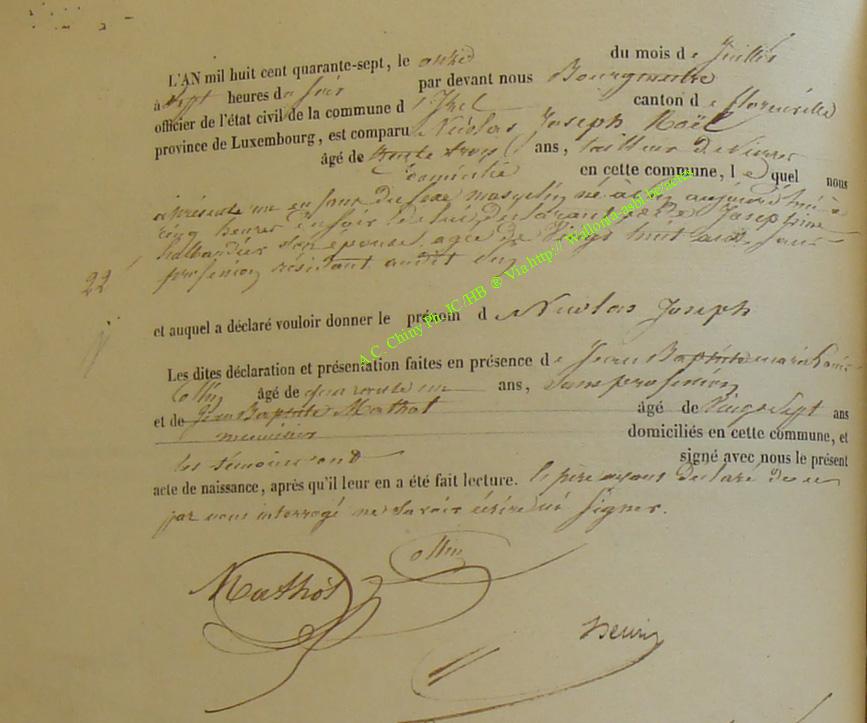 L'AN mil huit cent quarante-sept, le onze du mois de Juillet
à sept heures du soir par devant nous Bourgmestre
officier de l'état civil de la commune d'Izel canton de Florenville
province de Luxembourg, est comparu Nicolas Joseph Noël
âgé de trente trois ans, tailleur de
domicilié en cette commune, lequel nous
a présenté un enfant du sexe masculin né à aujourd'hui à
cinq heures du soir de lui déclarant et de Josephine
son epouse, agée de vingt huit ans sans
profession résidant audit
22
et auquel a déclaré vouloir donner le prénom de Nicolas Joseph
Les dites déclaration et présentation faites en présence de Jean Baptiste
Collin âgé de quarante un ans, sans profession
et de Jean Baptiste Mathot âgé de vingt sept ans
menuisier domiciliés en cette commune, et
les témoins ont signé avec nous le présent
acte de naissance, après qu'il leur en a été fait lecture. le père ayant déclaré de ce
par nous interrogé ne savoir écrire ni signer.
Collin
Mathot
Henry
A.C. Chiny Ph. JC/HB ® Via http://Wallonia-asbl.be/actes